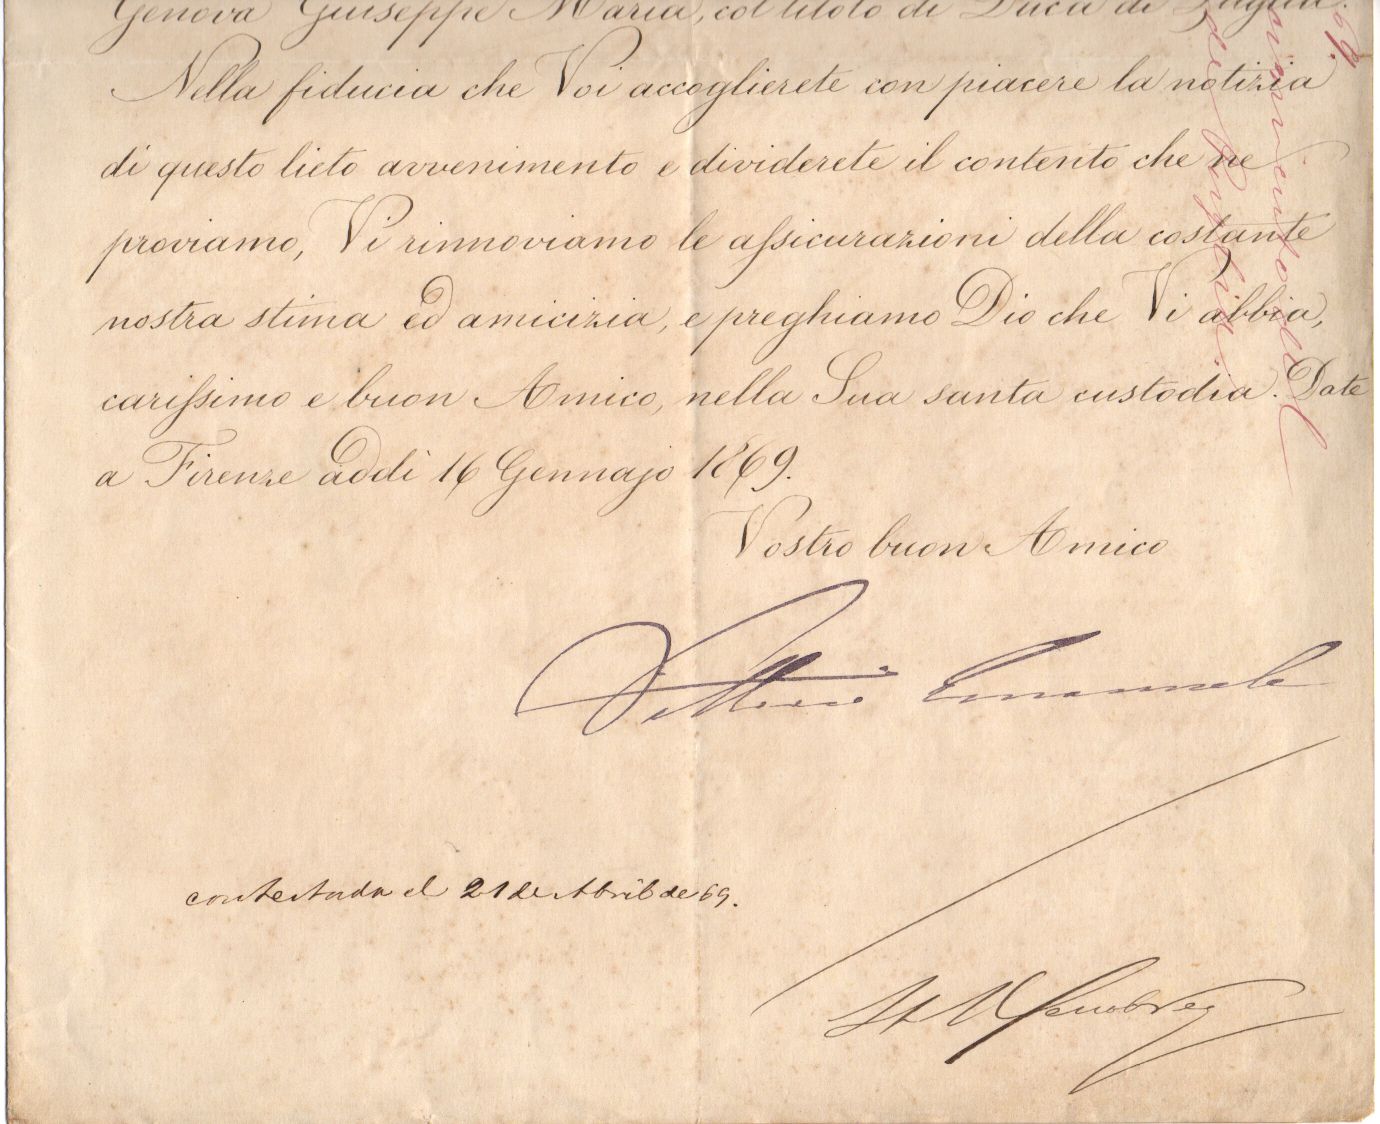 Genova Giuseppe Maria, col titolo di Duca di Puglia.
Nella fiducia che Voi accoglierete con piacere la notizia
di questo lieto avvenimento e dividerete il contento che ne
proviamo, Vi rinnoviamo le assicurazioni della costante
nostra stima ed amicizia, e preghiamo Dio che Vi abbia,
carissimo e buon Amico, nella Sua santa custodia. Date
a Firenze addì 16 Gennajo 1869.
Vostro buon Amico
Vittorio Emanuele
contestada el 21 de Abril de 69.
69.